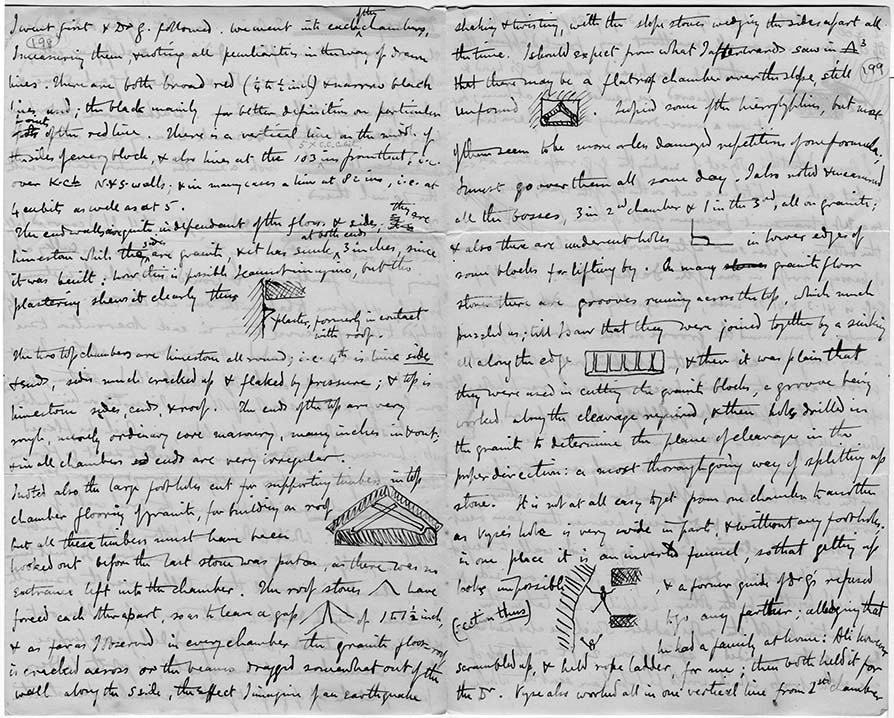 198
I went first & Dr. G. followed. we went into each of the chambers,
measuring them, & noting all peculiarities in the way of drawn
lines. There are both broad red (¼ to ½ inch) & narrow black
lines used; the black mainly for better definition on particular
parts of the red line. There is a vertical line in the midst of
the sides of every block, & also lines at the 103 ins from that; i.e.
5 × C.C. cubit
over K. Ch N & S walls; & in many cases a line at 82 ins, i.e. at
4 cubits as well as at 5.
The end walls are quite independent of the floors & sides, they are
limestone while the sides are granite, & it has sunk at both ends 3 inches, since
it was built: how this is possible I cannot imagine, but the
plastering shews it clearly thus
plaster, formerly in contact
with roof.
The two top chambers are limestone all round; i.e. 4th is lime sides
& ends, sides much cracked up & flaked by pressure; & top is
limestone sides, ends, & roof. The ends of the top are very
rough, merely ordinary core masonry, many inches in & out,
& in all chambers ends are very irregular.
I noted also the large foot holes cut for supporting timbers in top
chamber flooring of granite, for building on roof
but all these timbers must have been
hooked out before the last stone was put on, as there was no
entrance left into the chamber. The roof stones have
forced each other apart, so as to leave a gap of 1 to 1½ inch,
& as far as I observed in every chamber the granite floor or roof
is cracked across or the beams dragged somewhat out of the
wall along the S side, the effect I imagine of an earthquake
199
shaking & twisting, with the slope stones wedging the sides apart all
the time. I should expect from what I afterwards saw in 3
that there may be a flat roof chamber over the slope, still
unfound. I copied some of the hieroglyphics, but most
of them seem to be more or less damaged repetition of one formula;
I must go over them all some day. I also noted & measured
all the bosses, 3 in 2nd chamber & 1 in the 3rd, all on granite;
& also there are undercut holes in lower edges of
some blocks for lifting by. On many granite floor
stones there are grooves running across the top, which much
puzzled us; till I saw that they were joined together by a sinking
all along the edge, & then it was plain that
they were used in cutting the granite blocks, a groove being
worked along the cleavage required, & then holes drilled in
the granite to determine the plane of cleavage in the
proper direction: a most thorough going way of splitting up
stone. It is not at all easy to get from one chamber to another
as Vyse's hole is very wide in part, & without any foot holes,
in one place it is an inverted funnel, so that getting up
looks impossible, & a former guide of Dr G's refused
(section thus)
to go any farther: alledging that
he had a family at home: Ali however
scrambled up, & held rope ladder, for me; then both held it for
the Dr. Vyse also worked all in one vertical line from 2nd chamber,